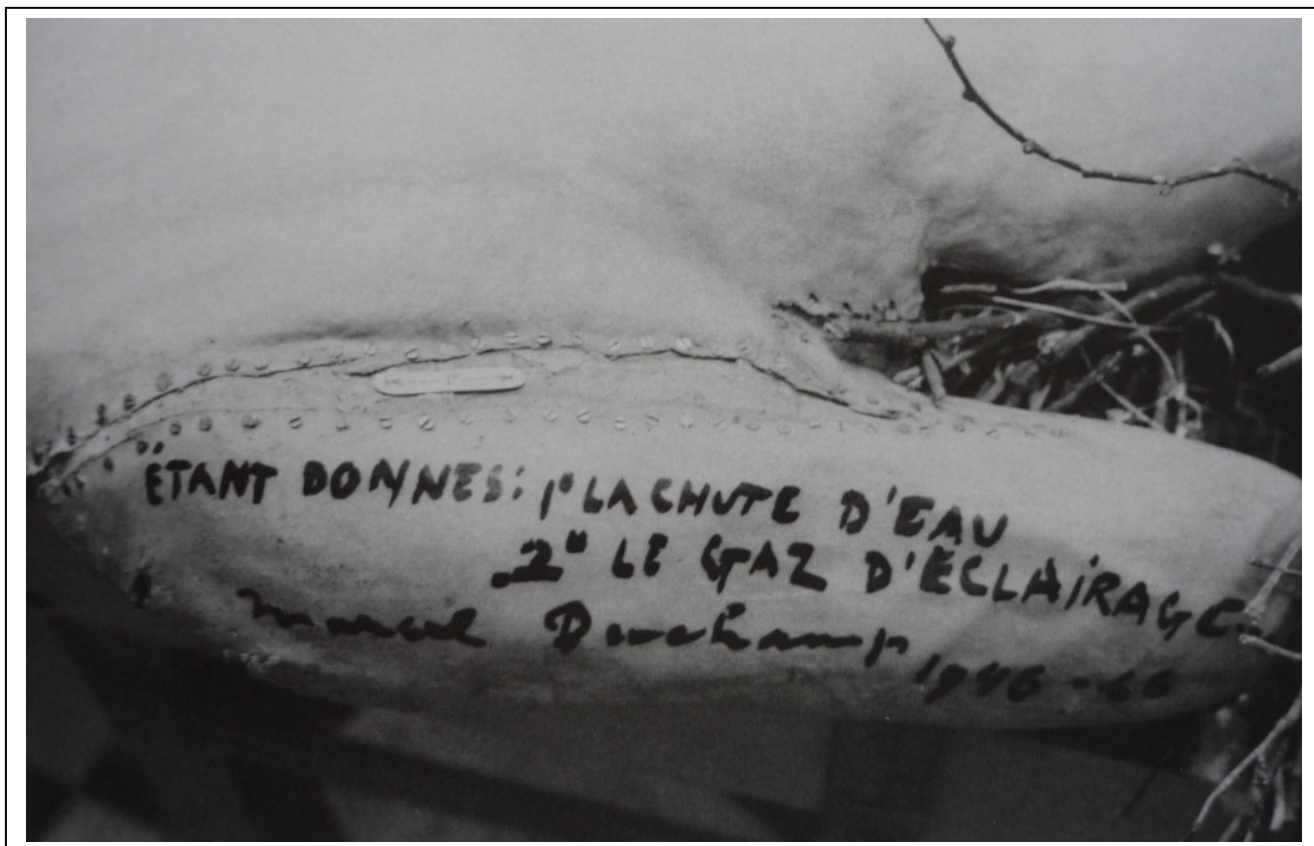 ÉTANT DONNÉS: 1° LA CHUTE D'EAU
2° LE GAZ D'ÉCLAIRAGE
Marcel Duchamp
1946-66